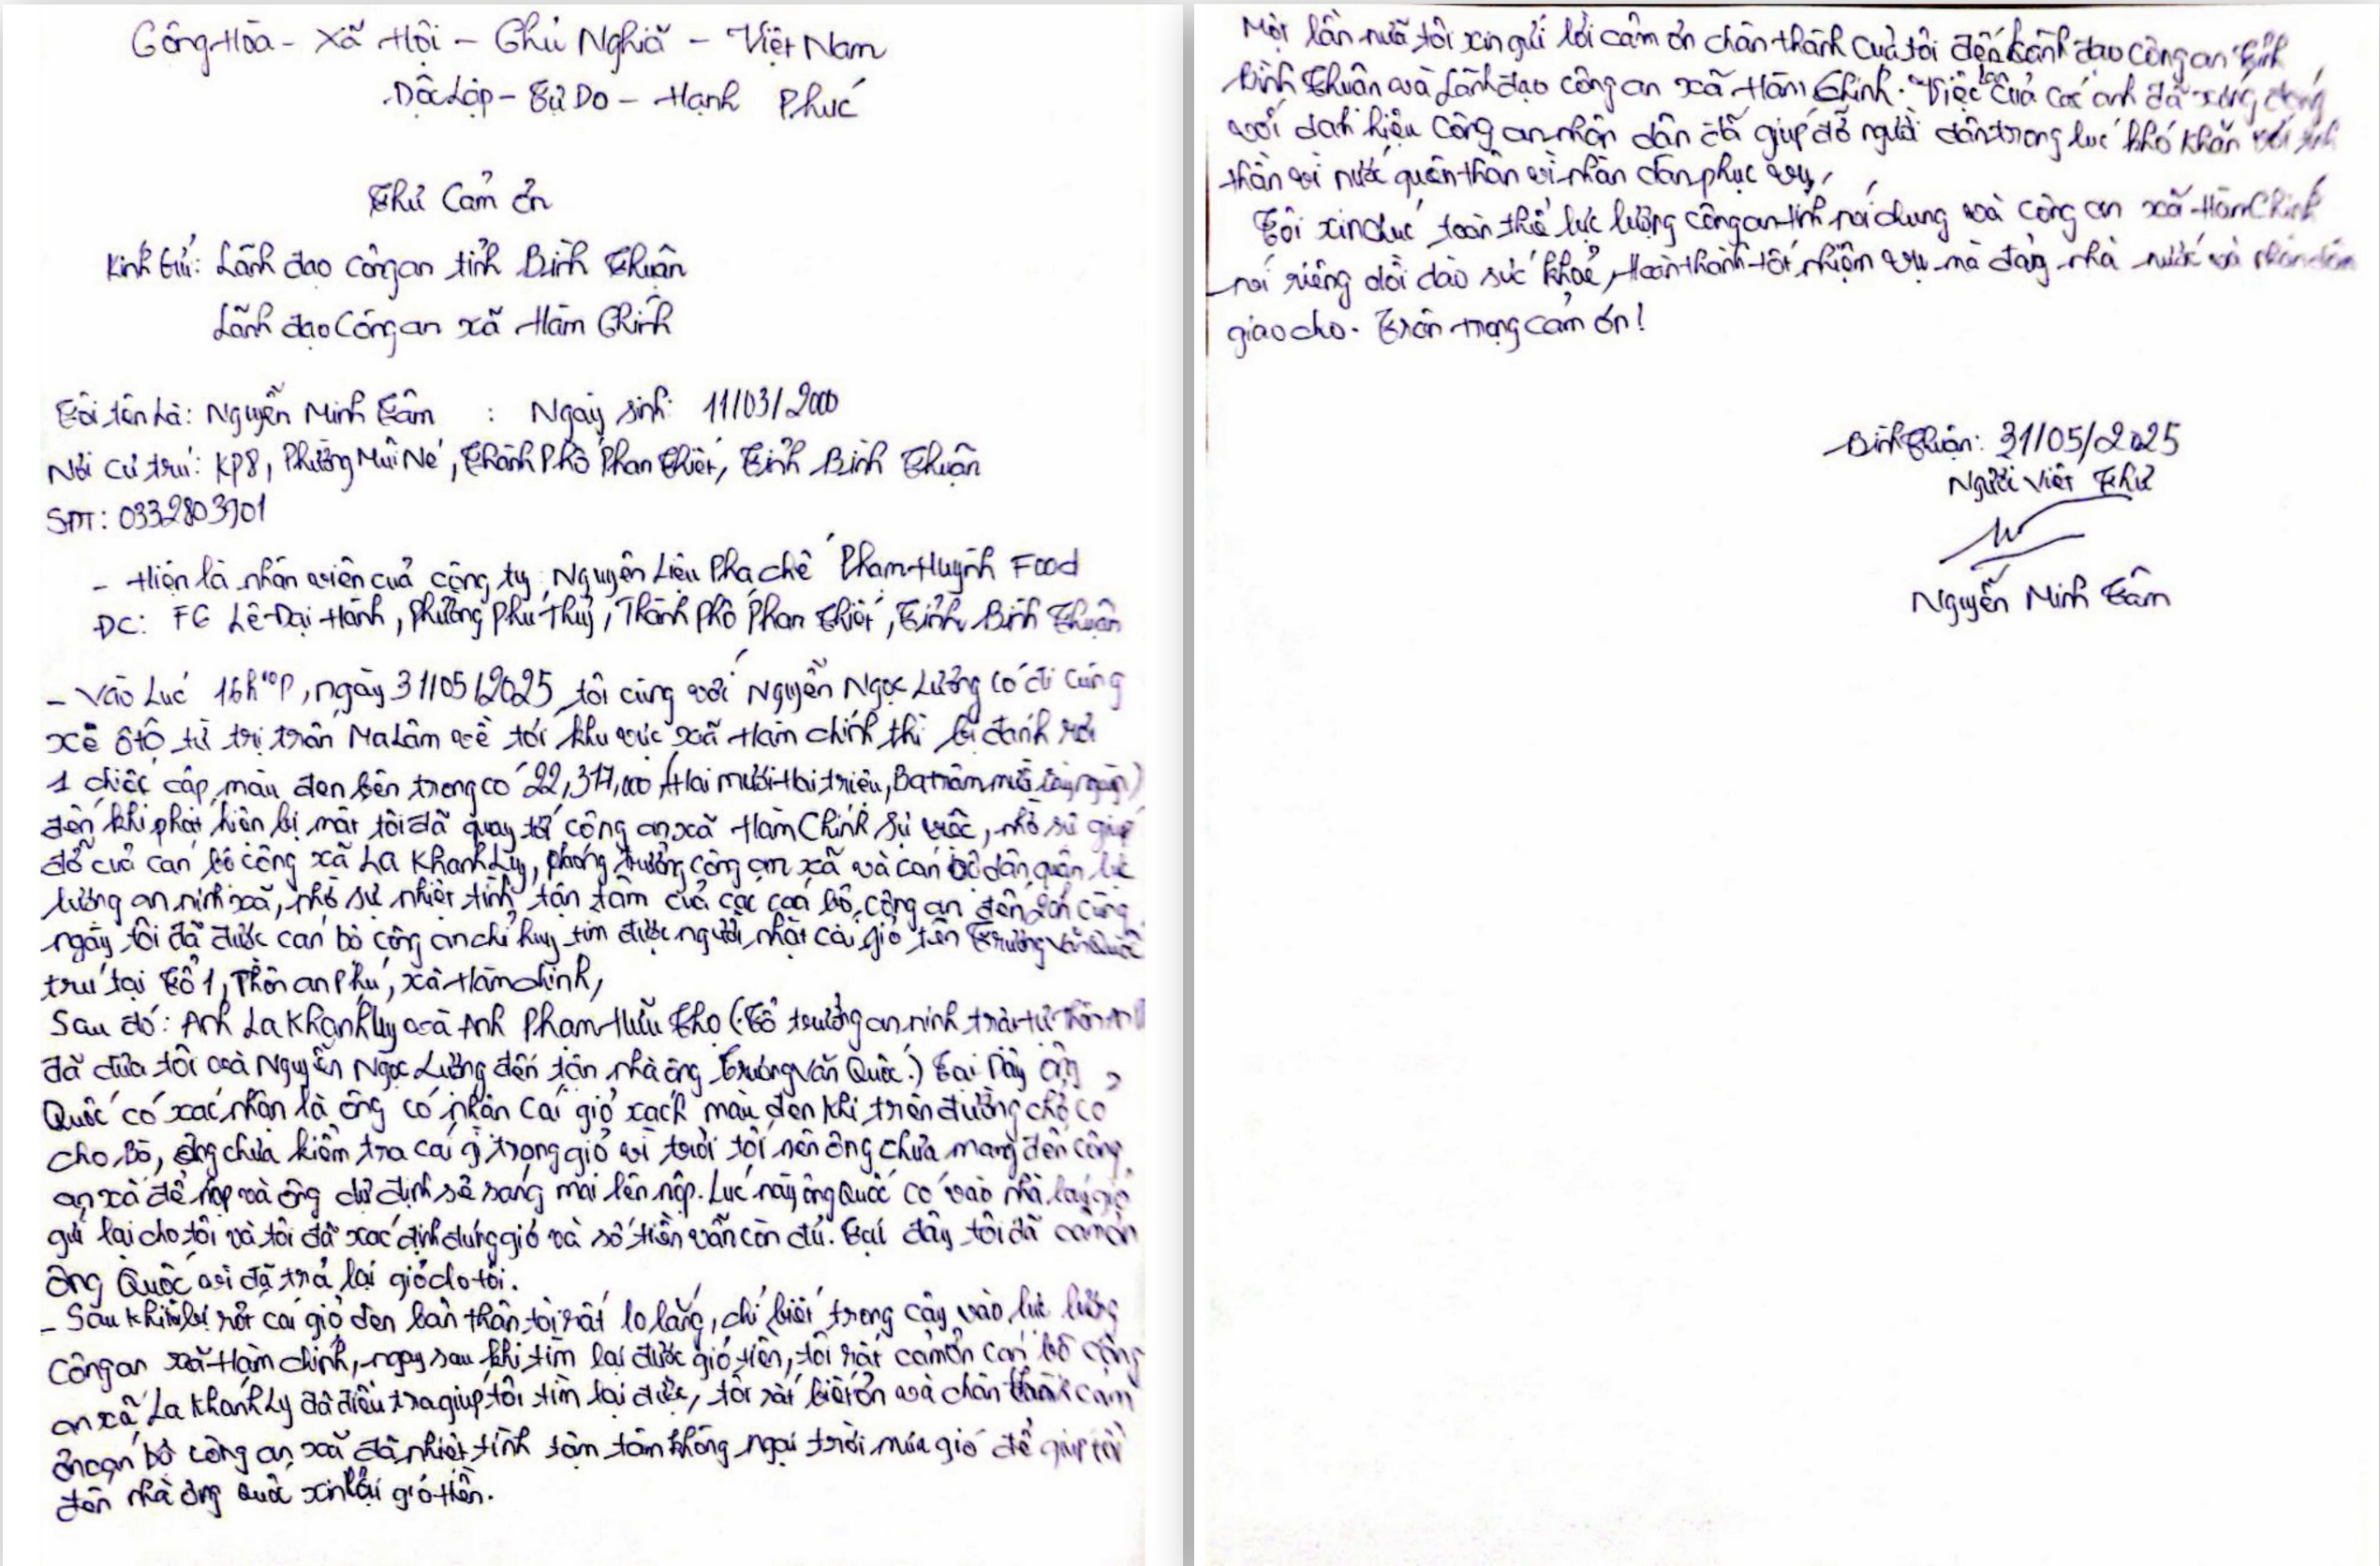 Cộng Hòa - Xã Hội - Chủ Nghiã - Việt Nam
Độc Lập - Tự Do - Hạnh Phúc
Thư Cảm ơn
Kính Gửi: Lãnh đạo công an tỉnh Bình Thuận
Lãnh đạo Công an xã Hàm Chính
Tôi tên Là: Nguyễn Minh Tâm : Ngày sinh: 11/03/2000
Nơi cư trú: KP8, Phường Mũi Né, Thành Phố Phan Thiết, Tỉnh Bình Thuận
SĐT: 0332803901
- Hiện là nhân viên của công ty: Nguyên Liệu Pha chế Phạm Huỳnh Food
ĐC: F6 Lê Đại Hành, Phường Phú Thuỷ, Thành Phố Phan Thiết, Tỉnh Bình Thuận
- Vào Lúc 16h, ngày 31/05/2025, tôi cùng với Nguyễn Ngọc Lưỡng có đi cùng
xe ôtô từ trị trấn Ma Lâm về tới khu vực xã Hàm chính thì bị đánh rơi
1 chiếc cặp màu đen bên trong có 22,317,000 (Hai mươi Hai triệu, Ba trăm mười bảy ngàn)
đến khi phát hiện bị mất tôi đã quay tới công an xã Hàm Chính sự việc, nhờ sự giúp
đỡ của cán bộ công xã La Khánh Ly, phó trưởng công an xã và cán bộ dân quân lực
lượng an ninh xã, nhờ sự nhiệt tình, tận tâm của các cán bộ công an đến cùng
ngày tôi đã được cán bộ công an chỉ huy tìm được người nhặt cái giỏ tên Trương Văn Quốc
trú tại Tổ 1, Thôn an Phú, xã Hàm chính,
Sau đó: Anh La Khánh Ly và Anh Phạm Hữu Thọ (Tổ trưởng an ninh trật tự Thôn
đã đưa tôi và Nguyễn Ngọc Lưỡng đến tận nhà ông Trương Văn Quốc.) Tại Đây ông
Quốc có xác nhận là ông có nhặn cái giỏ xách màu đen khi trên đường chở cỏ
cho Bò, ông chưa kiểm tra cái gì trong giỏ vì trời tối nên ông chưa mang đến công
an xã để nộp và ông dự định sẽ sáng mai lên nộp. Lúc này ông Quốc có vào nhà lấy giỏ
gửi lại cho tôi và tôi đã xác định đúng giỏ và số tiền vẫn còn đủ. Tại đây tôi đã cảm ơn
ông Quốc vì đã trả lại giỏ cho tôi.
- Sau khi bị rớt cái giỏ đen bản thân tôi rất lo lắng, chỉ biết trong cậy vào lực lượng
Công an xã Hàm chính, ngay sau khi tìm lại được giỏ tiền, tôi rất cảm ơn cán bộ công
an xã La Khánh Ly đã điều tra giúp tôi tìm lại được, tôi rất biết ơn và chân thành cảm
ơn cán bộ công an xã đã nhiệt tình tậm tâm không ngại trời mưa gió để giúp tôi
đến nhà ông Quốc xin lại giỏ tiền.
Một lần nữa tôi xin gửi lời cảm ơn chân thành của tôi đến Lãnh đạo công an tỉnh
Bình Thuận và Lãnh đạo công an xã Hàm Chính. Việc làm của các anh đã xứng đáng
với danh hiệu công an nhân dân đã giúp đỡ người dân trong lúc khó khăn với tinh
thần vì nước quên thân vì nhân dân phục vụ,
Tôi xin chúc toàn thể lực lượng công an tỉnh nói chung và công an xã Hàm Chính
nói riêng dồi dào sức khoẻ, Hoàn thành tốt nhiệm vụ mà đảng nhà nước và nhân dân
giao cho. Trân trọng cảm ơn!
Bình Thuận: 31/05/2025
Người Viết Thư
Nguyễn Minh Tâm